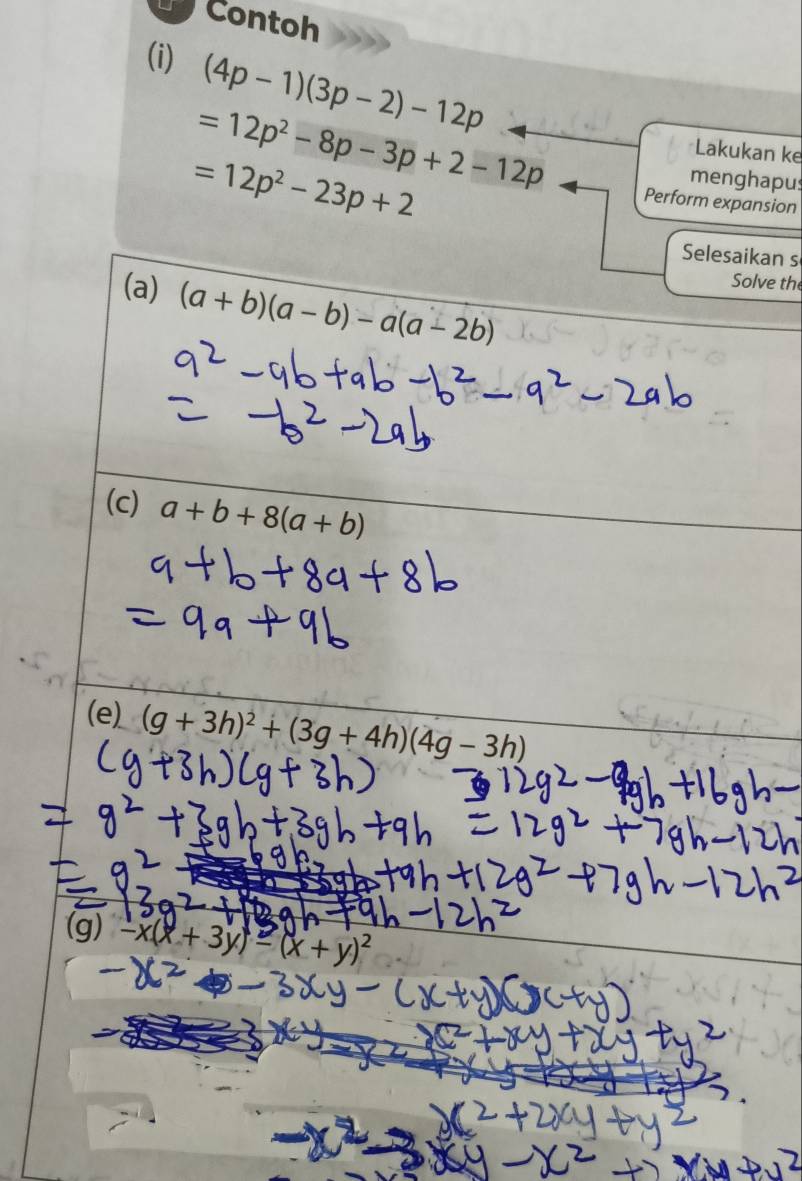 Contoh
(i) (4p − 1)(3p − 2) − 12p
= 12p² − 8p − 3p + 2 − 12p
= 12p² − 23p + 2
Lakukan ke
menghapus
Perform expansion
Selesaikan s
Solve the
(a) (a + b)(a − b) − a(a − 2b)
a² − ab + ab − b² − a² − 2ab
= −b² − 2ab
(c) a + b + 8(a + b)
a + b + 8a + 8b
= 9a + 9b
(e) (g + 3h)² + (3g + 4h)(4g − 3h)
(g + 3h)(g + 3h)
12g² − 9gh + 16gh −
= g² + 3gh + 3gh + 9h
= 12g² + 7gh − 12h
= g² + 6gh + 9h + 12g² + 7gh − 12h²
= 13g² + 13gh + 9h − 12h²
(g) −x(x + 3y) − (x + y)²
−x² − 3xy − (x + y)(x + y)
x² + xy + xy + y²
x² + 2xy + y²
−x² − 3xy − x² + 2xy + y²